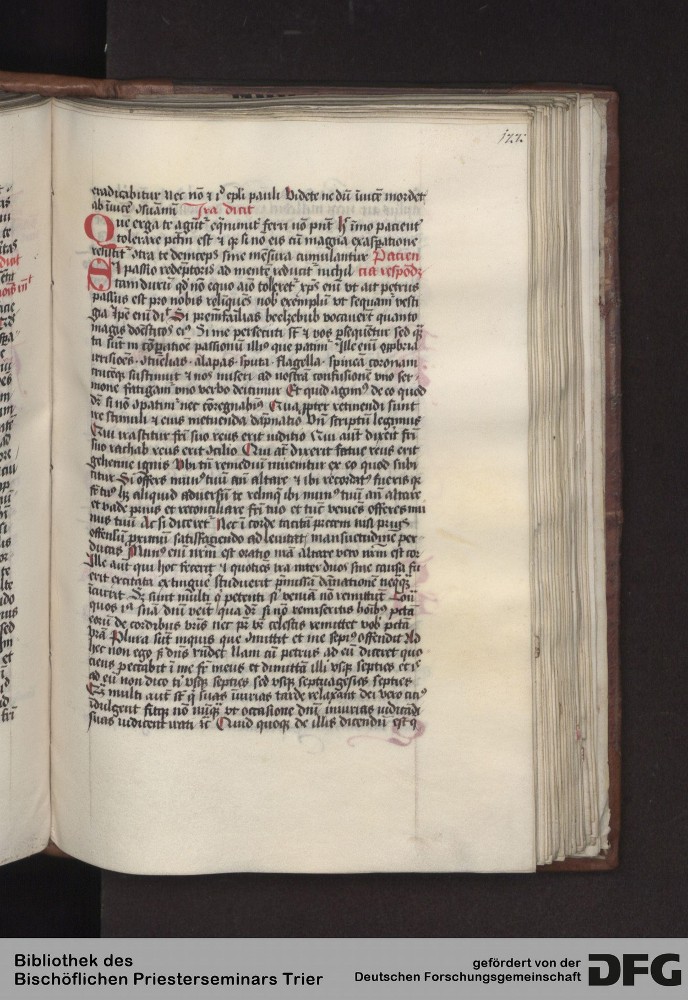 177
eradicabitur Nec nō ⁊ iᵈ epłi pauli Videte ne dū īuicē mordet͛
ab īuicē ꝯsūami Ira dicit
Que erga te agūt͛ eq̄nimit͛ ferri nō pn̄t ħ īmo pacient͛
tolerare pctm̄ est ⁊ qꝛ si nō eis cū magna exasꝑatione
resistit͛ ꝯtra te deinceps sine mēsura cumulantur Pacien
Si passio redēptoris ad mentē reducit͛ nichil cia respōdꝫ
tam durū qd̄ nō equo aīo toleret͛ xp̄s enī vt ait petrus
passus est pro nobis relīques nob̄ exemplū vt sequam͛ vesti
gia Ipse enī dī Si premfailias beelzebub vocauert̄ quanto
magis doēsticos eiꝰ Si me persecuti st̄ ⁊ vos ꝑsequētur sed q̄
ta sūt in cōpatoē passionū illiꝰ que patim͛ Ille enī opprobria
irrisiōes ꝯtūelias alapas sputa flagella spineā coronam
crucēqꝫ sustinuit ⁊ nos miseri ad nostrā confusionē vno ser
mone fatigam͛ vno verbo deicimur Et quid agimꝰ de eo quod
dꝛ si nō ꝯpatim͛ nec cōregnabimꝰ Qua ꝓpter retinendi sunt
ire stimuli ⁊ eius metuenda dāpnatio Vn̄ scriptū legimus
Qui irascitur fri suo reus erit iuditio Qui aūt dixerit fri
suo rachab reus erit ꝯcilio Qui at͛ dixerit fatue reus erit
gehenne ignis Vbi tn̄ remediū inuenitur ex eo quod subi
citur Si offers munꝰ tuū an̄ altare ⁊ ibi recordatꝰ fueris qꝛ
fr̄ tuꝰ hꝫ aliquid aduersū te relinq̄ ibi munꝰ tuū an̄ altare
et vade prius et reconciliare fri tuo et tūc venies offeres mu
nus tuū Ac si diceret͛ Nec ī corde tacitā precem nisi priꝰ
offensū proximū satisfaciendo ad lenitatē mansuetudīne per
ducas Munꝰ enī nrm̄ est oratio nrā Altare vero nrm̄ est cor
Ille aūt qui hoc fecerit ⁊ quoties ira inter duos sine causa fu
erit excitata extingue studuerit p̄missā dānationē neqꝫqꝫ
īcurrit Sꝫ sunt multi q̄ petenti si veniā nō remittūt Con
quos iᵃ snīa dnī veīt qua dꝛ si nō remiseritis hoībꝰ pctā
eorū de cordibus vris nec pr̄ vr̄ celestis remittet vob̄ pctā
vrā Plura sūt inquis que ꝯmittit et me sepiꝰ offendit Ad
hec non ego s dn̄s rn̄det Nam cū petrus ad eū diceret quo
ciens peccabit ī me fr̄ meus et dimittā illi vsqꝫ septies et iᵈ
ad eū non dico ti vsqꝫ septies sed vsqꝫ septuagesies septies
Qꝫ multi aūt st̄ q̄ suas iniurias tarde relaxant dei vero citiꝰ
īdulgent fitqꝫ nō nūqꝫ vt occasione dnī iniurias vidicādi
suas vidicent irati ⁊c Quid quoqꝫ de illis dicendū est q
Bibliothek des
Bischöflichen Priesterseminars Trier
gefördert von der
Deutschen Forschungsgemeinschaft
DFG